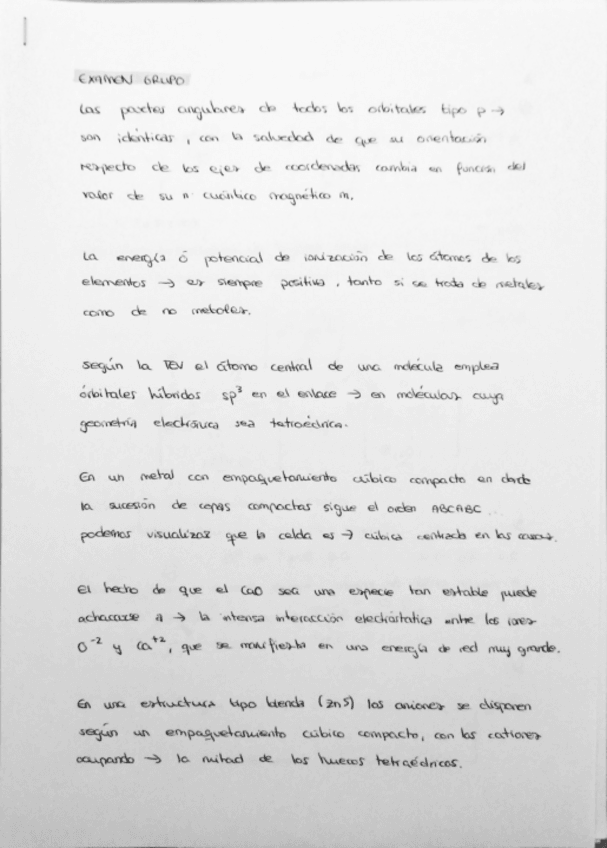 EXAMEN GRUPO
Las partes angulares de todos los orbitales tipo p →
son idénticas, con la salvedad de que su orientación
respecto de los ejes de coordenadas cambia en función del
valor de su nº cuántico magnético m.
La energía ó potencial de ionización de los átomos de los
elementos → es siempre positiva, tanto si se trata de metales
como de no metales.
según la TEV el átomo central de una molécula emplea
órbitales híbridos sp³ en el enlace → en moléculas cuya
geometría electrónica sea tetraédrica.
En un metal con empaquetamiento cúbico compacto en donde
la sucesión de capas compactas sigue el orden ABCABC...
podemos visualizar que la celda es → cúbica centrada en las caras.
El hecho de que el CaO sea una especie tan estable puede
achacarse a → la intensa interacción electróstatica entre los iones
O⁻² y Ca⁺², que se manifiesta en una energía de red muy grande.
En una estructura tipo blenda (ZnS) los aniones se disponen
según un empaquetamiento cúbico compacto, con los cationes
ocupando → la mitad de los huecos tetraédricos.